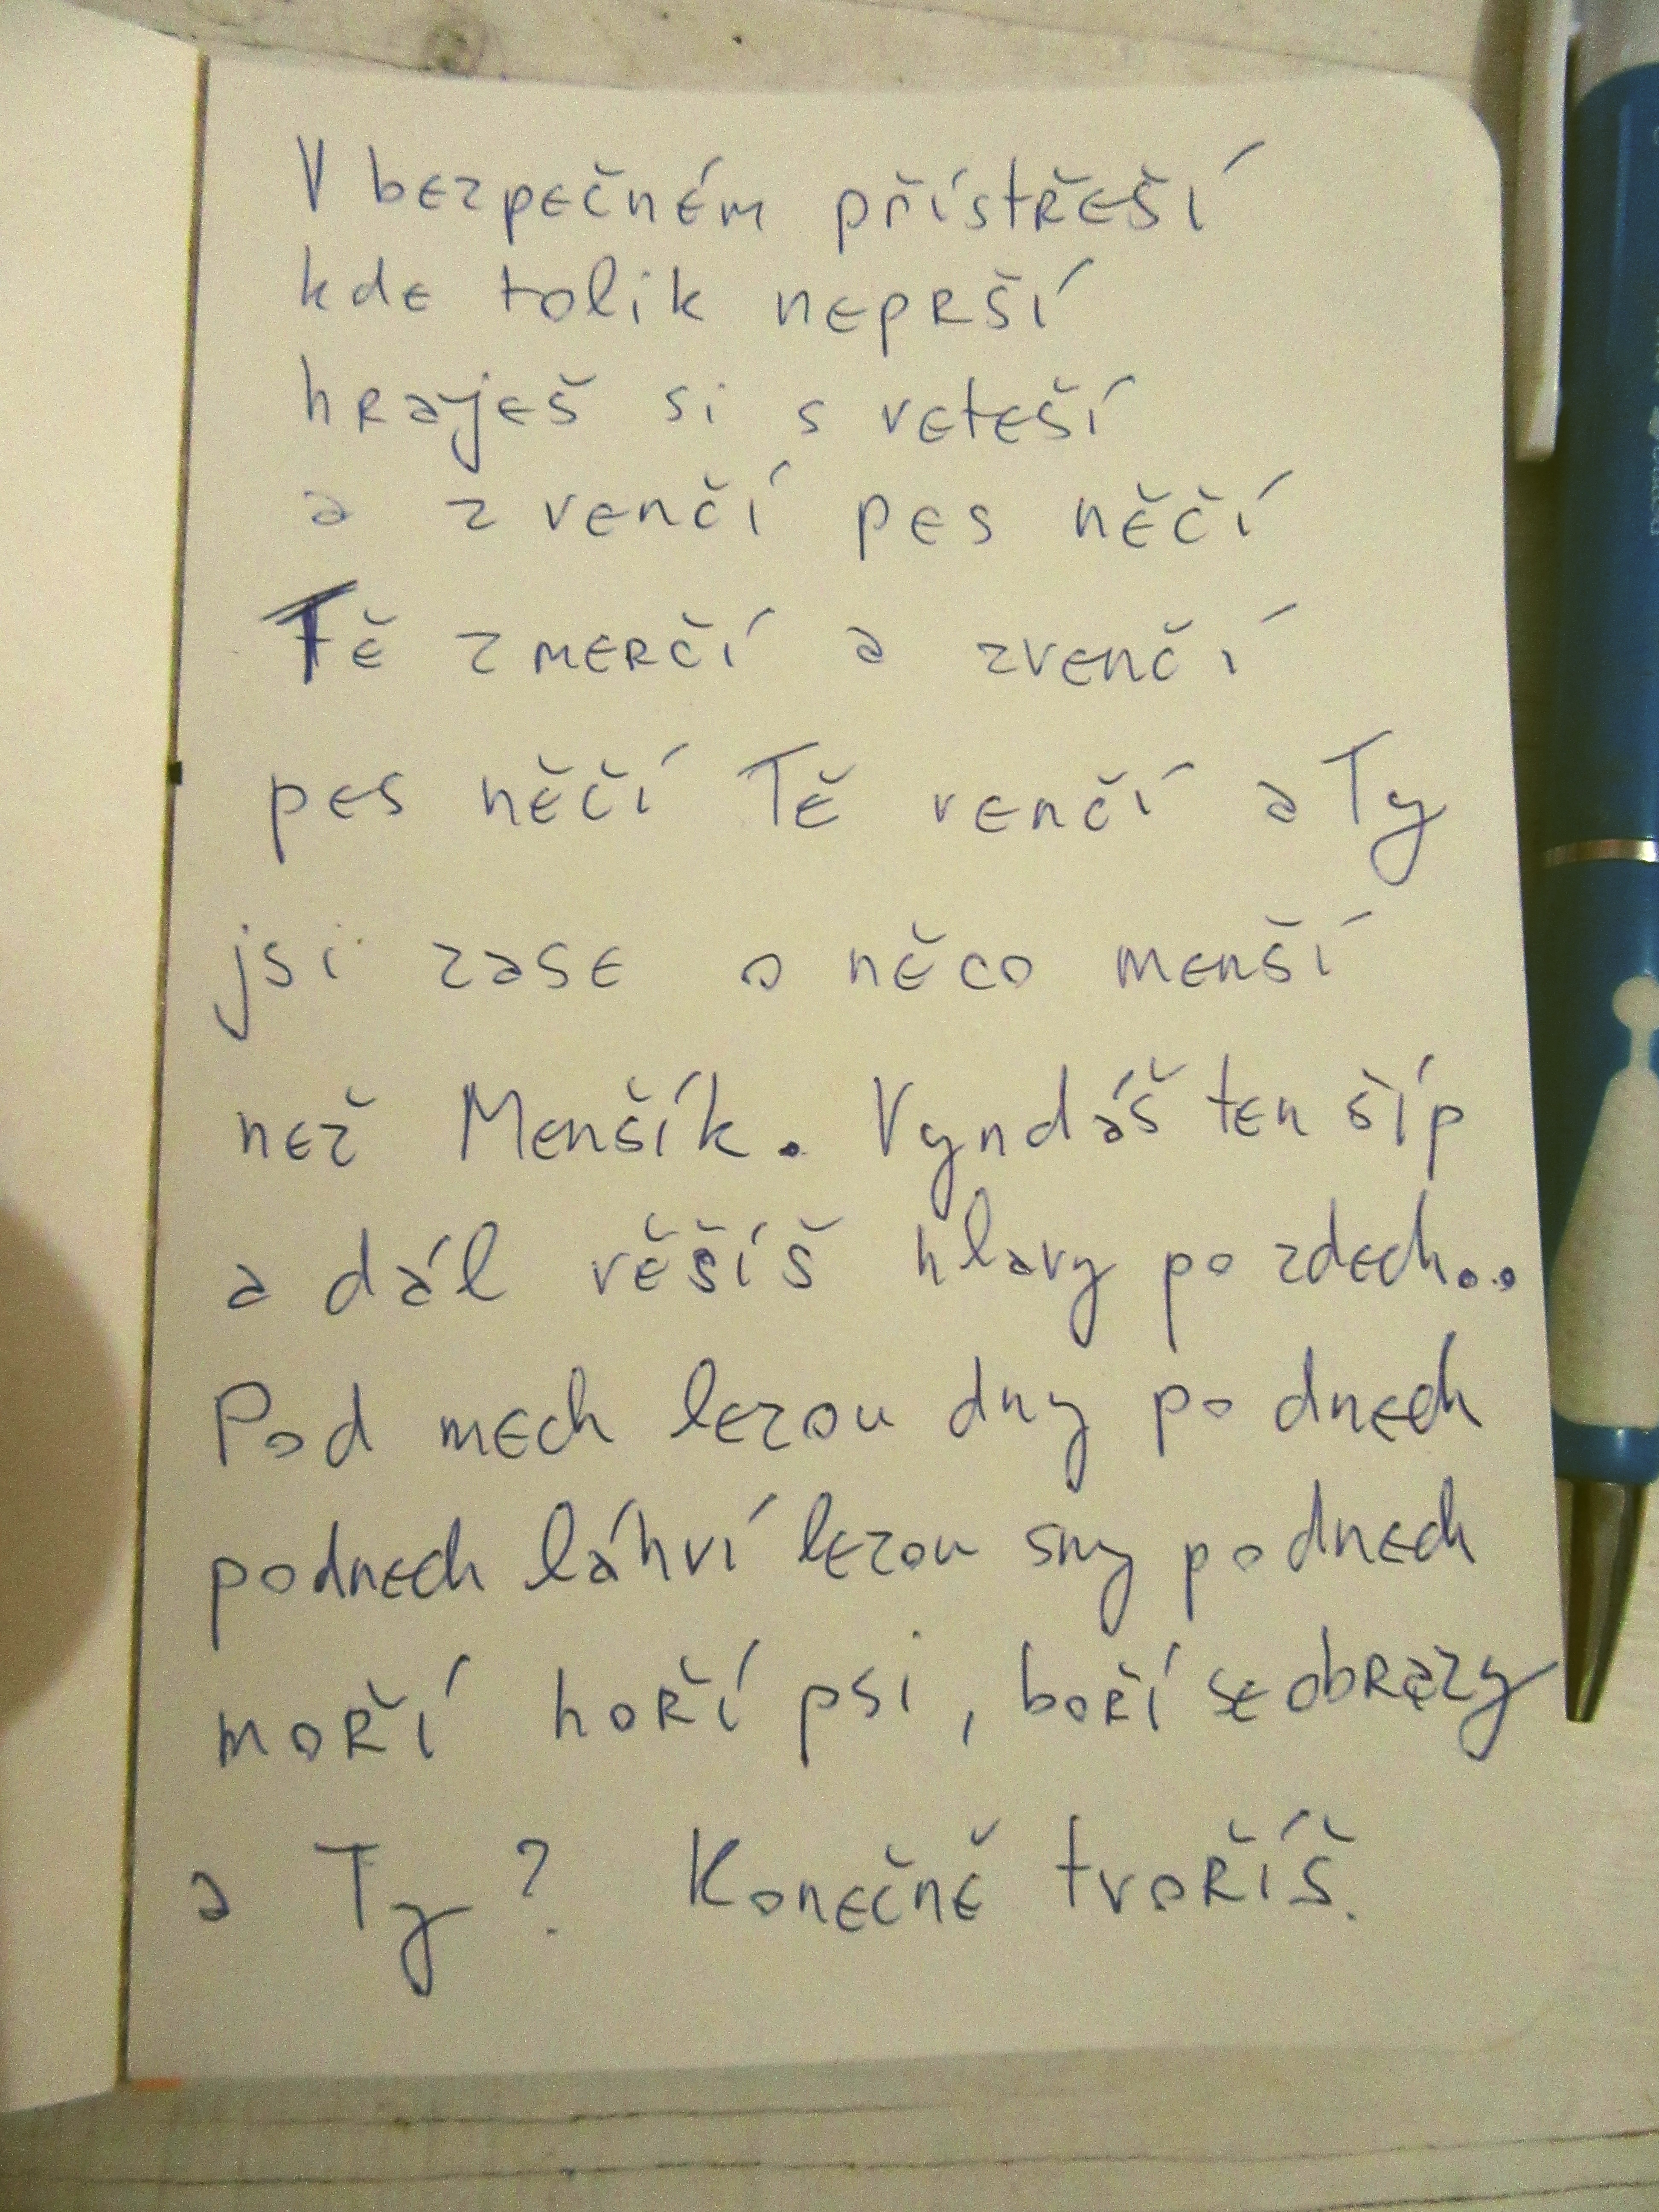 V bezpečném přístřeší
kde tolik neprší
hraješ si s veteší
a zvenčí pes něčí
Tě zmerčí a zvenčí
pes něčí Tě venčí a Ty
jsi zase o něco menší
než Menšík. Vyndáš ten šíp
a dál věšíš hlavy po zdech..
Pod mech lezou dny po dnech
podnech láhví lezou sny po dnech
moří hoří psi, boří se obrazy
a Ty? Konečně tvoříš.